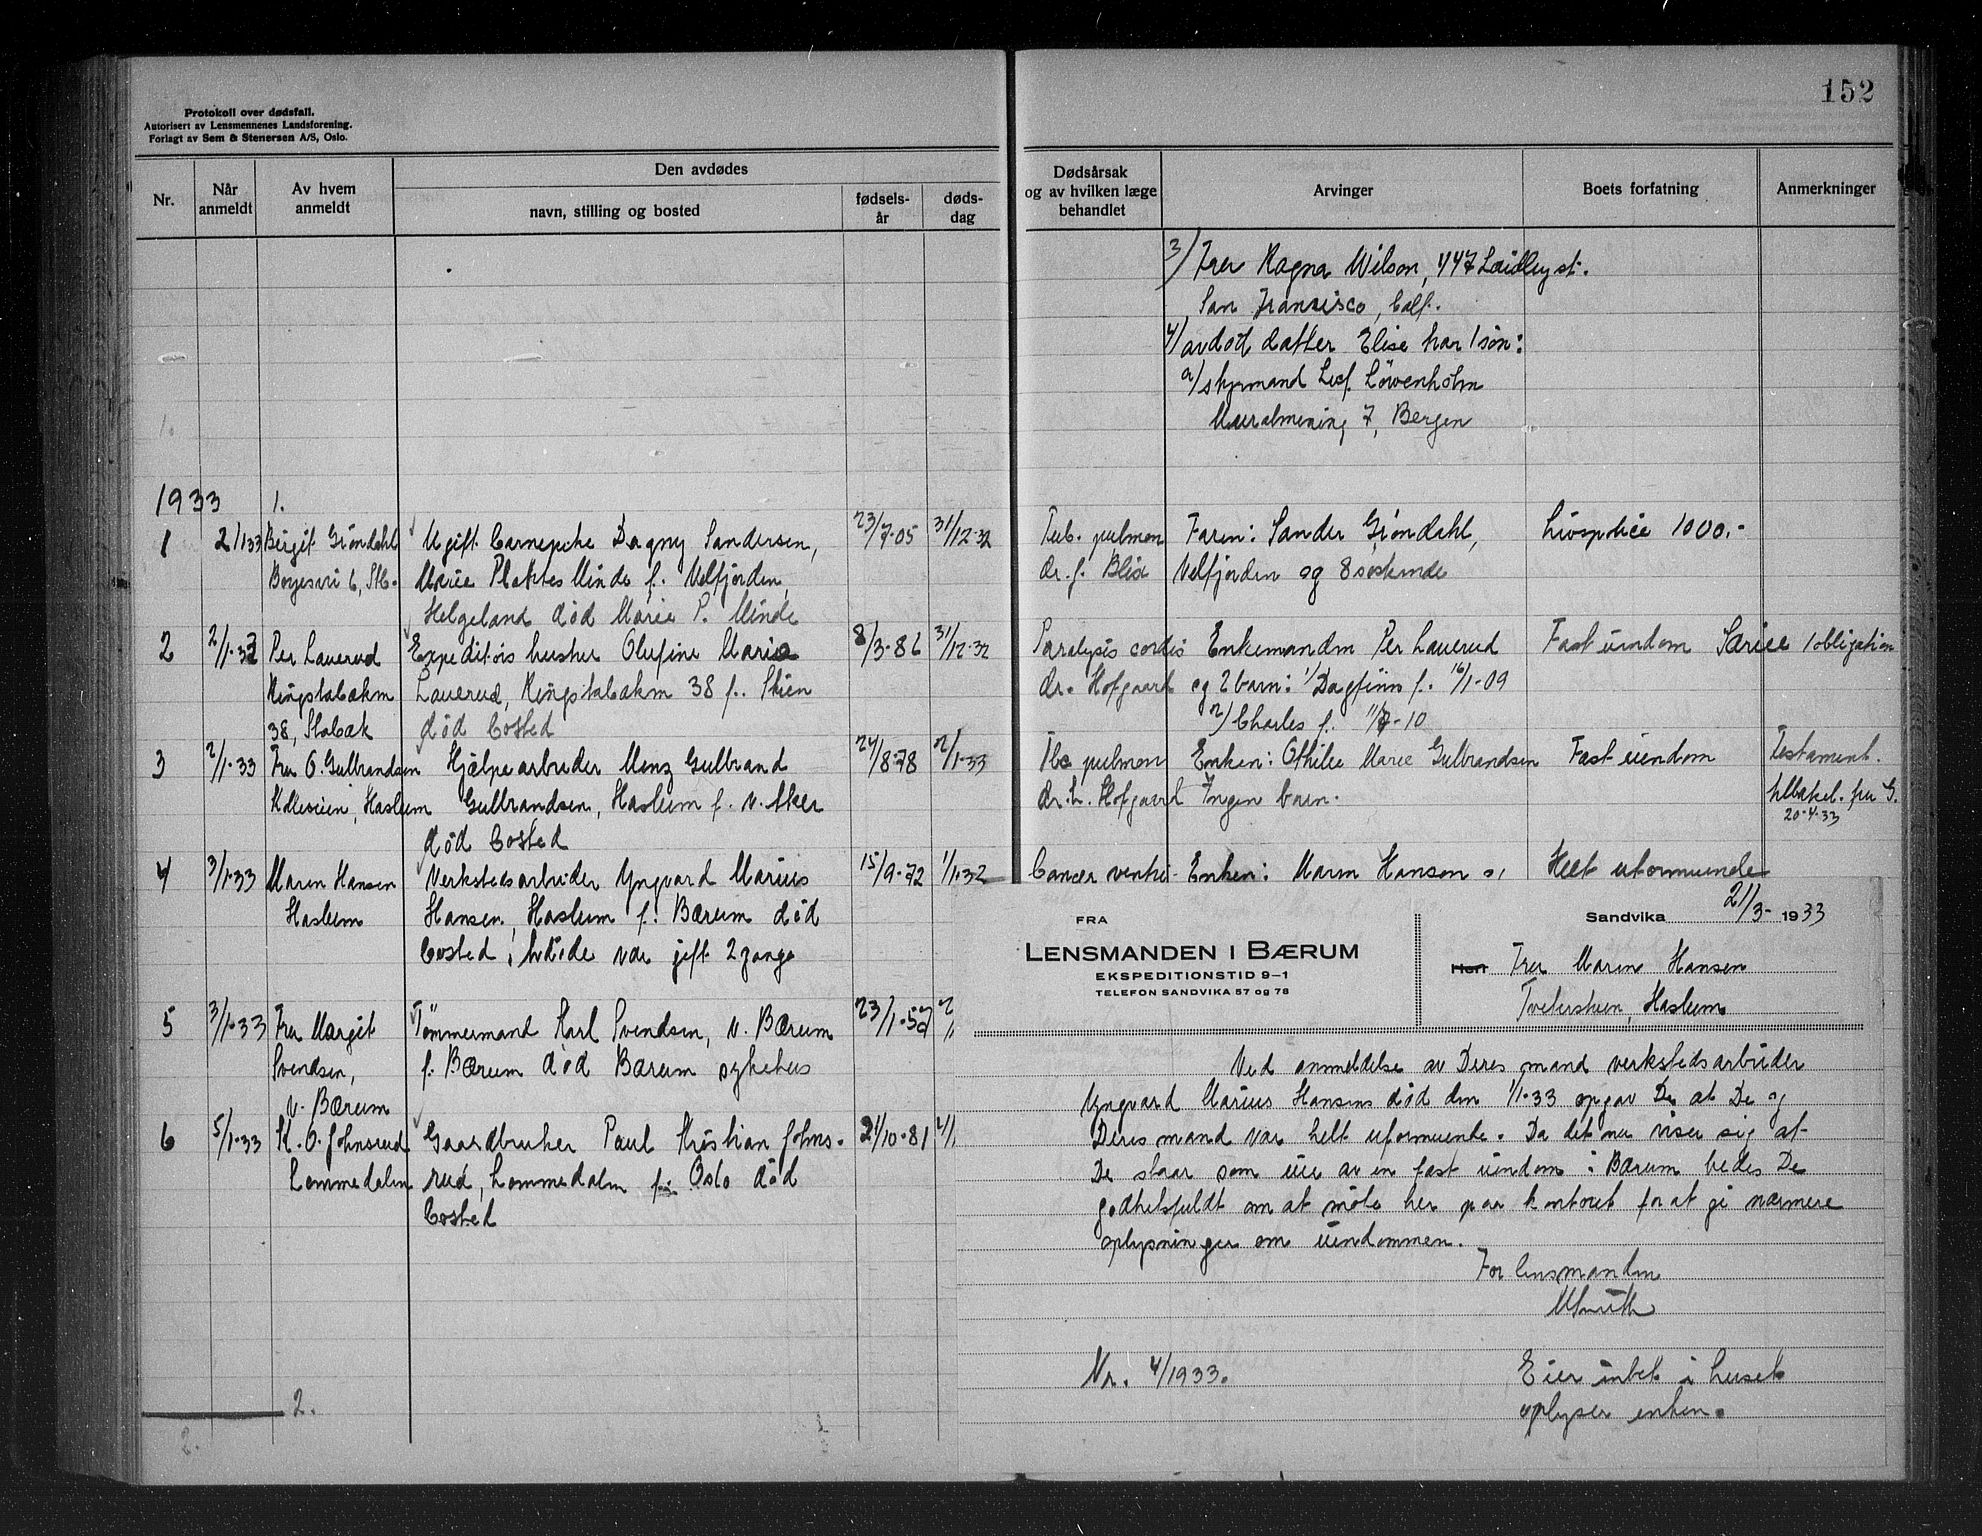 152
Protokoll over dødsfall.
Autorisert av Lensmennenes Landsforening.
Forlagt av Sem & Stenersen A/S, Oslo.
Nr.
Når anmeldt
Av hvem anmeldt
Den avdødes
navn, stilling og bosted
fødsels-
år
døds-
dag
Dødsårsak
og av hvilken læge
behandlet
Arvinger
Boets forfatning
Anmerkninger
3/ Fru Ragna Wilson, 447 Laidley st.
San Fransisco, Calf.
4/ avdød datter Elise har 1 søn:
a/ styrmand Leif Löwenholm
Muralmening 7, Bergen
1933
1.
1 2/1 33 Birgit Gröndahl Ugift barnepike Dagny Sandersen, 23/7-05 31/12-32 Tub. pulmon Faren: Sander Gröndahl, Livspolice 1000.-
6, Stb. Marie Plahtes Minde f. Velfjorden, dr. J. Blix Velfjorden og 8 søskende
Helgeland död Marie P. Minde
2 2/1-33 Per Lauerud Expeditörs hustru Olufine Marie 8/3-86 31/12-32 Paralysis cordis Enkemanden Per Lauerud Fast eiendom Særeie 1 obligation
Ringstabækm Lauerud, Ringstabækm 38 f. Skien dr. Hofgaard og 2 barn: 1/ Dagfinn f. 16/1-09
38, Stabæk död bosted 2/ Charles f. 11/7-10
3 2/1-33 Fru O. Gulbrandsen Hjælpearbeider Menz Gulbrand 24/8-78 2/1-33 Tbc pulmon Enken: Othilie Marie Gulbrandsen Fast eiendom Testament.
Kolleveien, Haslum Gulbrandsen, Haslum f. V. Aker dr. L. Hofgaard Ingen barn. tilbakel. fru G.
20-4-33
död bosted
4 3/1-33 Maren Hansen Verkstedsarbeider Yngvard Marius 15/9-72 1/1-32 Cancer ventri- Enken: Maren Hansen Helt uformuende
Haslum Hansen, Haslum f. Bærum död
bosted; bægge var gift 2 gange
5 3/1-33 Fru Margit Tömmermand Karl Svendsen, V. Bærum 23/1-57 2/1
Svendsen, f. Bærum död Bærum sykehus
V. Bærum
6 5/1-33 K. O. Johnsrud Gaardbruker Paul Kristian Johns- 21/10-81 2/1
Lommedalen rud, Lommedalen f. Oslo död
bosted
2.
2.
FRA
LENSMANDEN I BÆRUM
EKSPEDITIONSTID 9-1
TELEFON SANDVIKA 57 og 78
Sandvika 21/3- 1933
Herr Fru Maren Hansen
Tveterstuen, Haslum
Ved anmeldelse av Deres mand verkstedsarbeider
Yngvard Marius Hansens död den 1/1-33 opgav De at De og
Deres mand var helt uformuende. Da det nu viser sig at
De staar som eier av en fast eiendom i Bærum bedes De
godhetsfuldt om at möte her paa kontoret for at gi nærmere
oplysninger om eiendommen.
For lensmanden
Nr. 4/1933.
Eier intet i huset
oplyser enken.